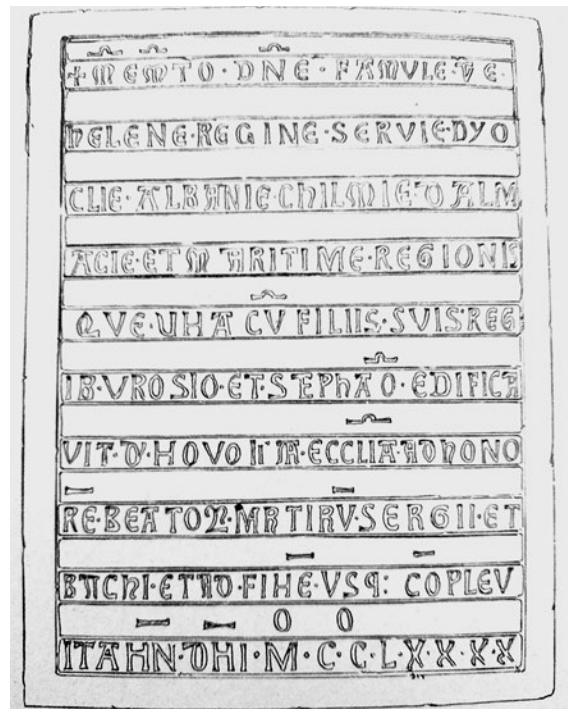 + MEMTO · DNE · FAMULE · TVE ·
HELENE · REGINE · SERVIE · DYO
CLIE · ALBANIE · CHILMIE · DALM
ACIE · ET MARITIME · REGIONIS
QVE · UNA CV FILIIS · SVIS · REG
IB · VROSIO · ET · STEPHAO · EDIFICA
VIT · D · NOVO ECCLIA · AD HONO
RE · BEATOR · MRTIRV · SERGII · ET
BACHI · ET AD · FINE · VSQ: COPLEV
IT AHN · DNI · M · C · C · L · X · X · X · X